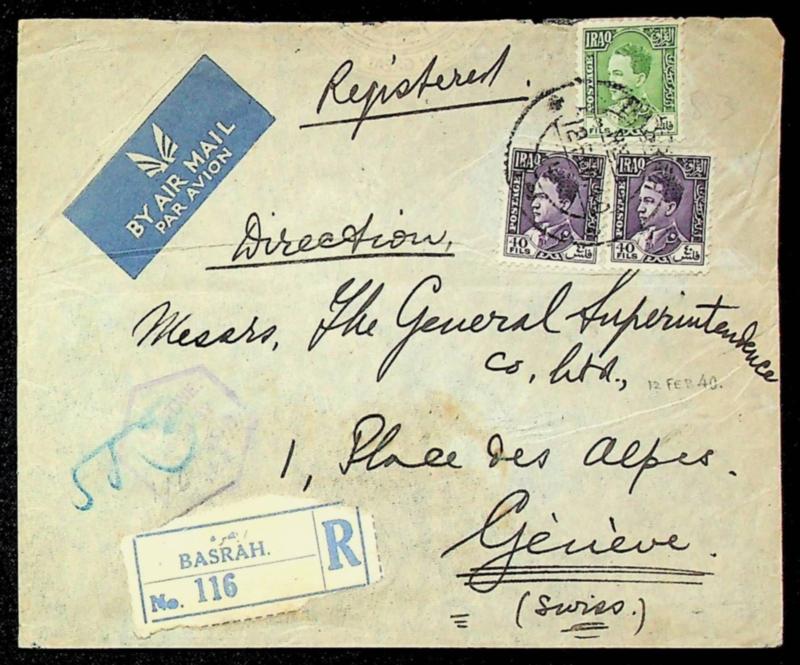 Registered.
BY AIR MAIL
PAR AVION
IRAQ العراق
POSTAGE
FILS
IRAQ
POSTAGE
40
FILS
IRAQ
POSTAGE
40
FILS
Direction,
Messrs, The General Superintendence
Co, Ltd.,
12 FEB 40.
1, Place des Alpes.
Génève.
(Swiss.)
بصرة
BASRAH.
R
No. 116